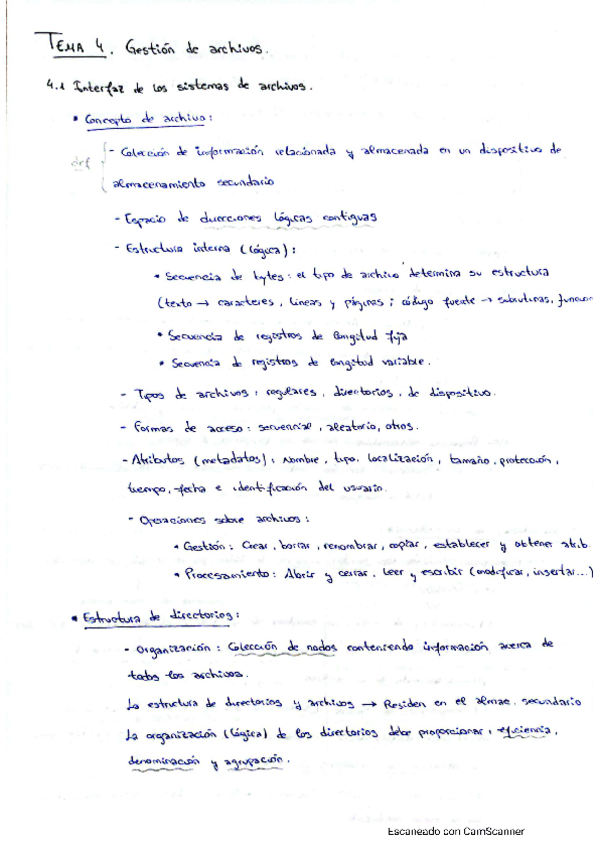 TEMA 4. Gestión de archivos.
4.1 Interfaz de los sistemas de archivos.
• Concepto de archivo:
def { - Colección de información relacionada y almacenada en un dispositivo de
almacenamiento secundario
- Espacio de direcciones lógicas contiguas
- Estructura interna (lógica):
• Secuencia de bytes: el tipo de archivo determina su estructura
(texto → caracteres, líneas y páginas; código fuente → subrutinas, funcion
• Secuencia de registros de longitud fija
• Secuencia de registros de longitud variable.
- Tipos de archivos: regulares, directorios, de dispositivo.
- Formas de acceso: secuencial, aleatorio, otros.
- Atributos (metadatos): nombre, tipo, localización, tamaño, protección,
tiempo, fecha e identificación del usuario.
- Operaciones sobre archivos:
• Gestión: Crear, borrar, renombrar, copiar, establecer y obtener atrib.
• Procesamiento: Abrir y cerrar, leer y escribir (modificar, insertar...)
• Estructura de directorios:
- Organización: Colección de nodos conteniendo información acerca de
todos los archivos.
La estructura de directorios y archivos → Residen en el almac. secundario
La organización (lógica) de los directorios debe proporcionar: eficiencia,
denominación y agrupación.
Escaneado con CamScanner